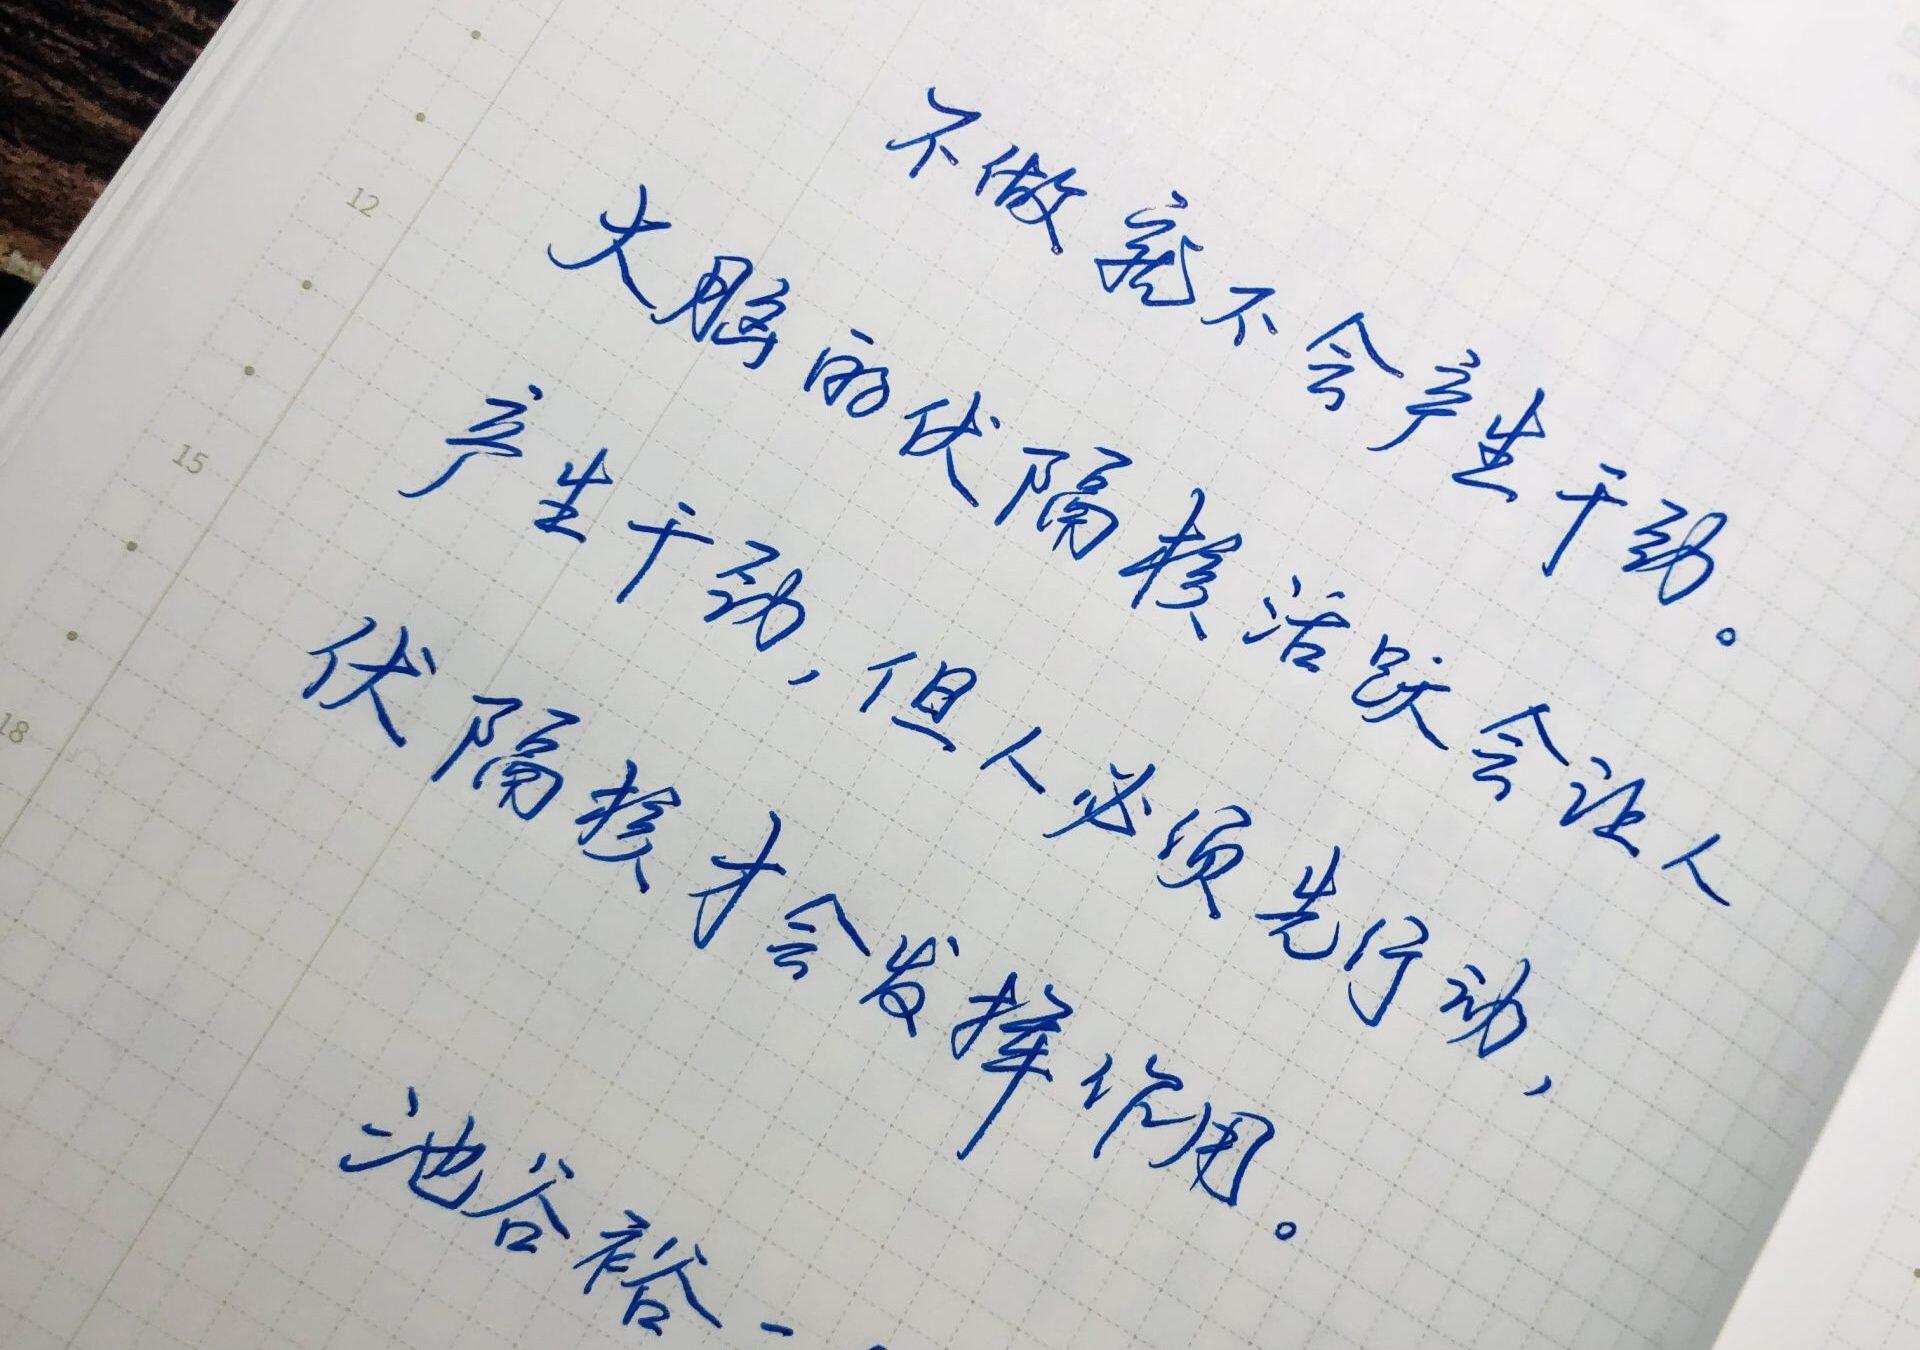 不做就不会产生干劲。
大脑的伏隔核活跃会让人
产生干劲,但人必须先行动,
伏隔核才会发挥作用。
池谷裕二
12
15
18